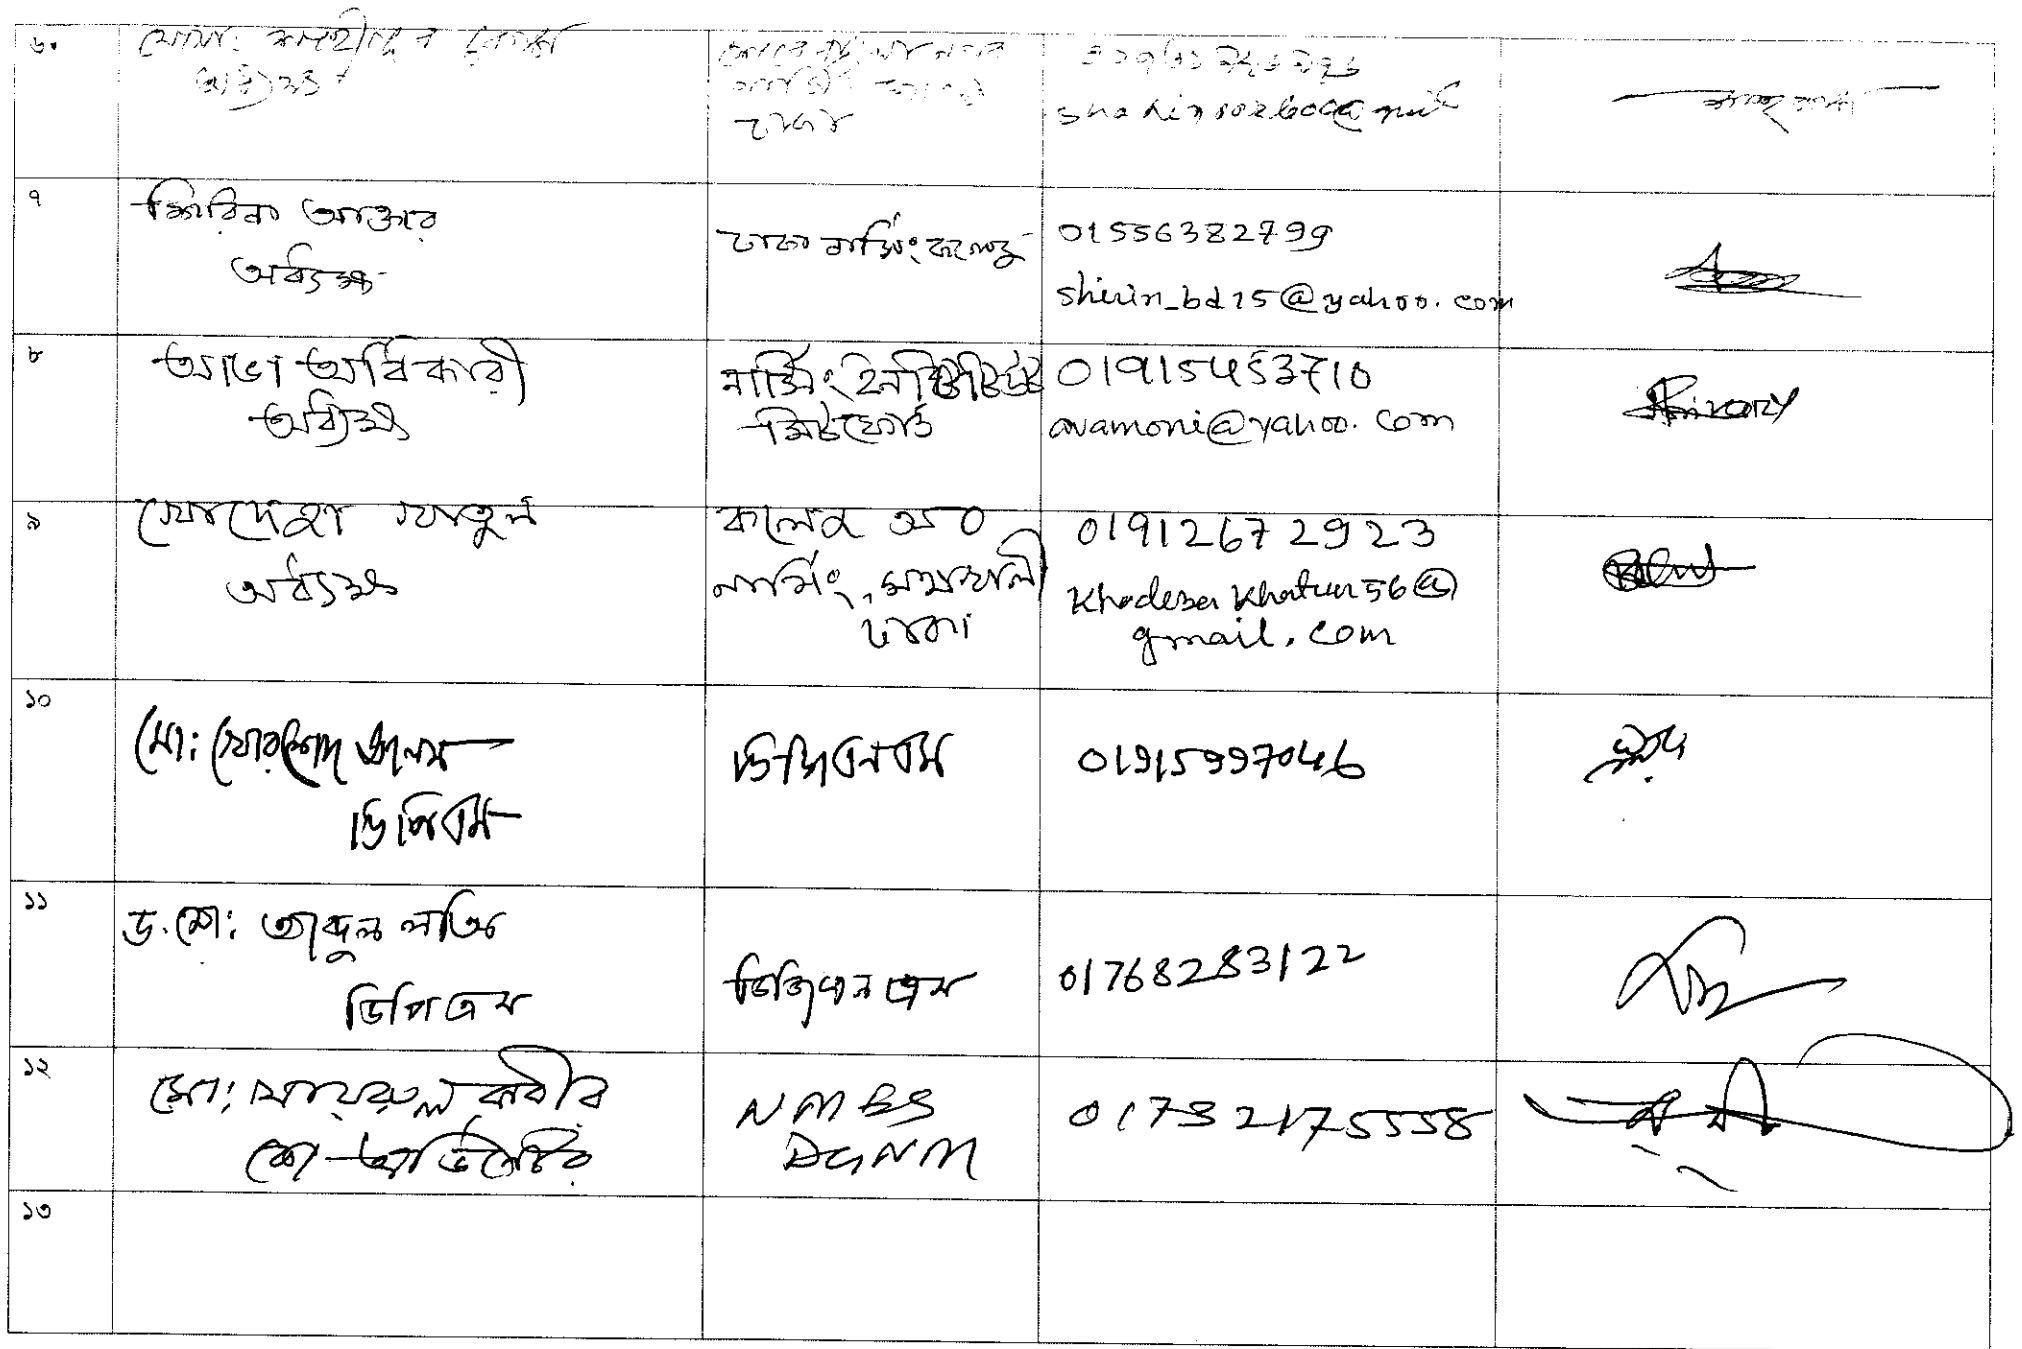 ৬.
মোসা:
ঢাকা
৭
শিরিনা আক্তার
অধ্যক্ষ
ঢাকা নার্সিং কলেজ
01556382799
shirin_bd15@yahoo.com
৮
আভা অধিকারী
অধ্যক্ষ
নার্সিং ইনস্টিটিউট
মিটফোর্ড
01915453710
avamoni@yahoo.com
৯
খোদেজা খাতুন
অধ্যক্ষ
কলেজ অব
নার্সিং, মহাখালী
ঢাকা।
01912672923
Khadeza Khatun56@
gmail.com
১০
মো: খোরশেদ আলম
ডিপিএম
ডিজিএনএম
01915997046
১১
ড. মো: আব্দুল লতিফ
ডিপিএম
ডিজিএনএম
01768283122
১২
মো: খায়রুল কবীর
কো-অর্ডিনেটর
NMES
DGNM
01732175558
১৩